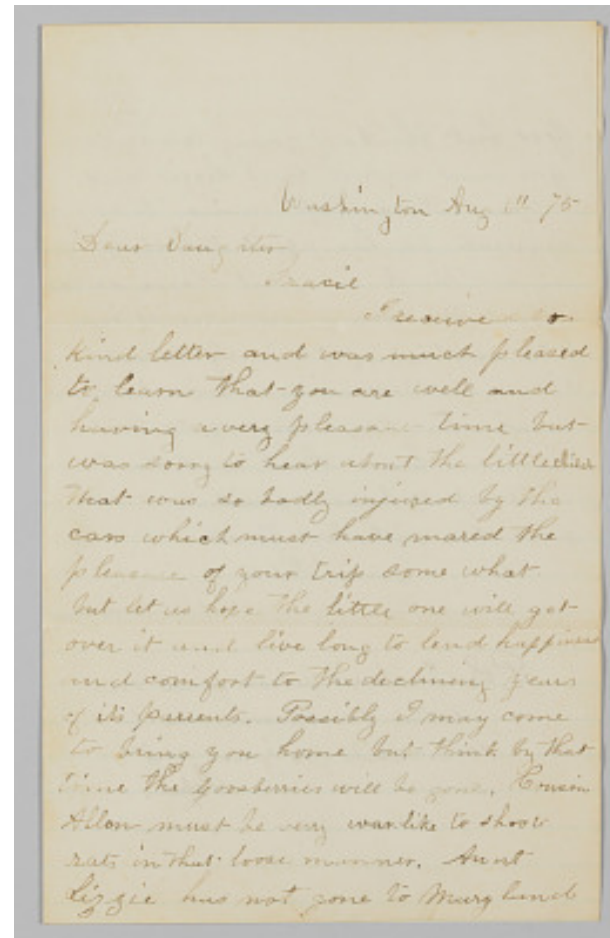 Washington Aug 75
Dear Daughter
I receive
kind letter and was much pleased
to learn that you are well and
having a very pleasant time but
was sorry to hear about the little
that was so badly injured by the
cars which must have mared the
pleasure of your trip some what.
but let us hope the little one will get
over it and live long to lend happiness
and comfort to the declining years
of its parents. Possibly I may come
to bring you home but think by that
time the goosberries will be gone. Cousin
Allen must be very warlike to shoot
rats in that loose manner. Aunt
Lizzie has not gone to Maryland